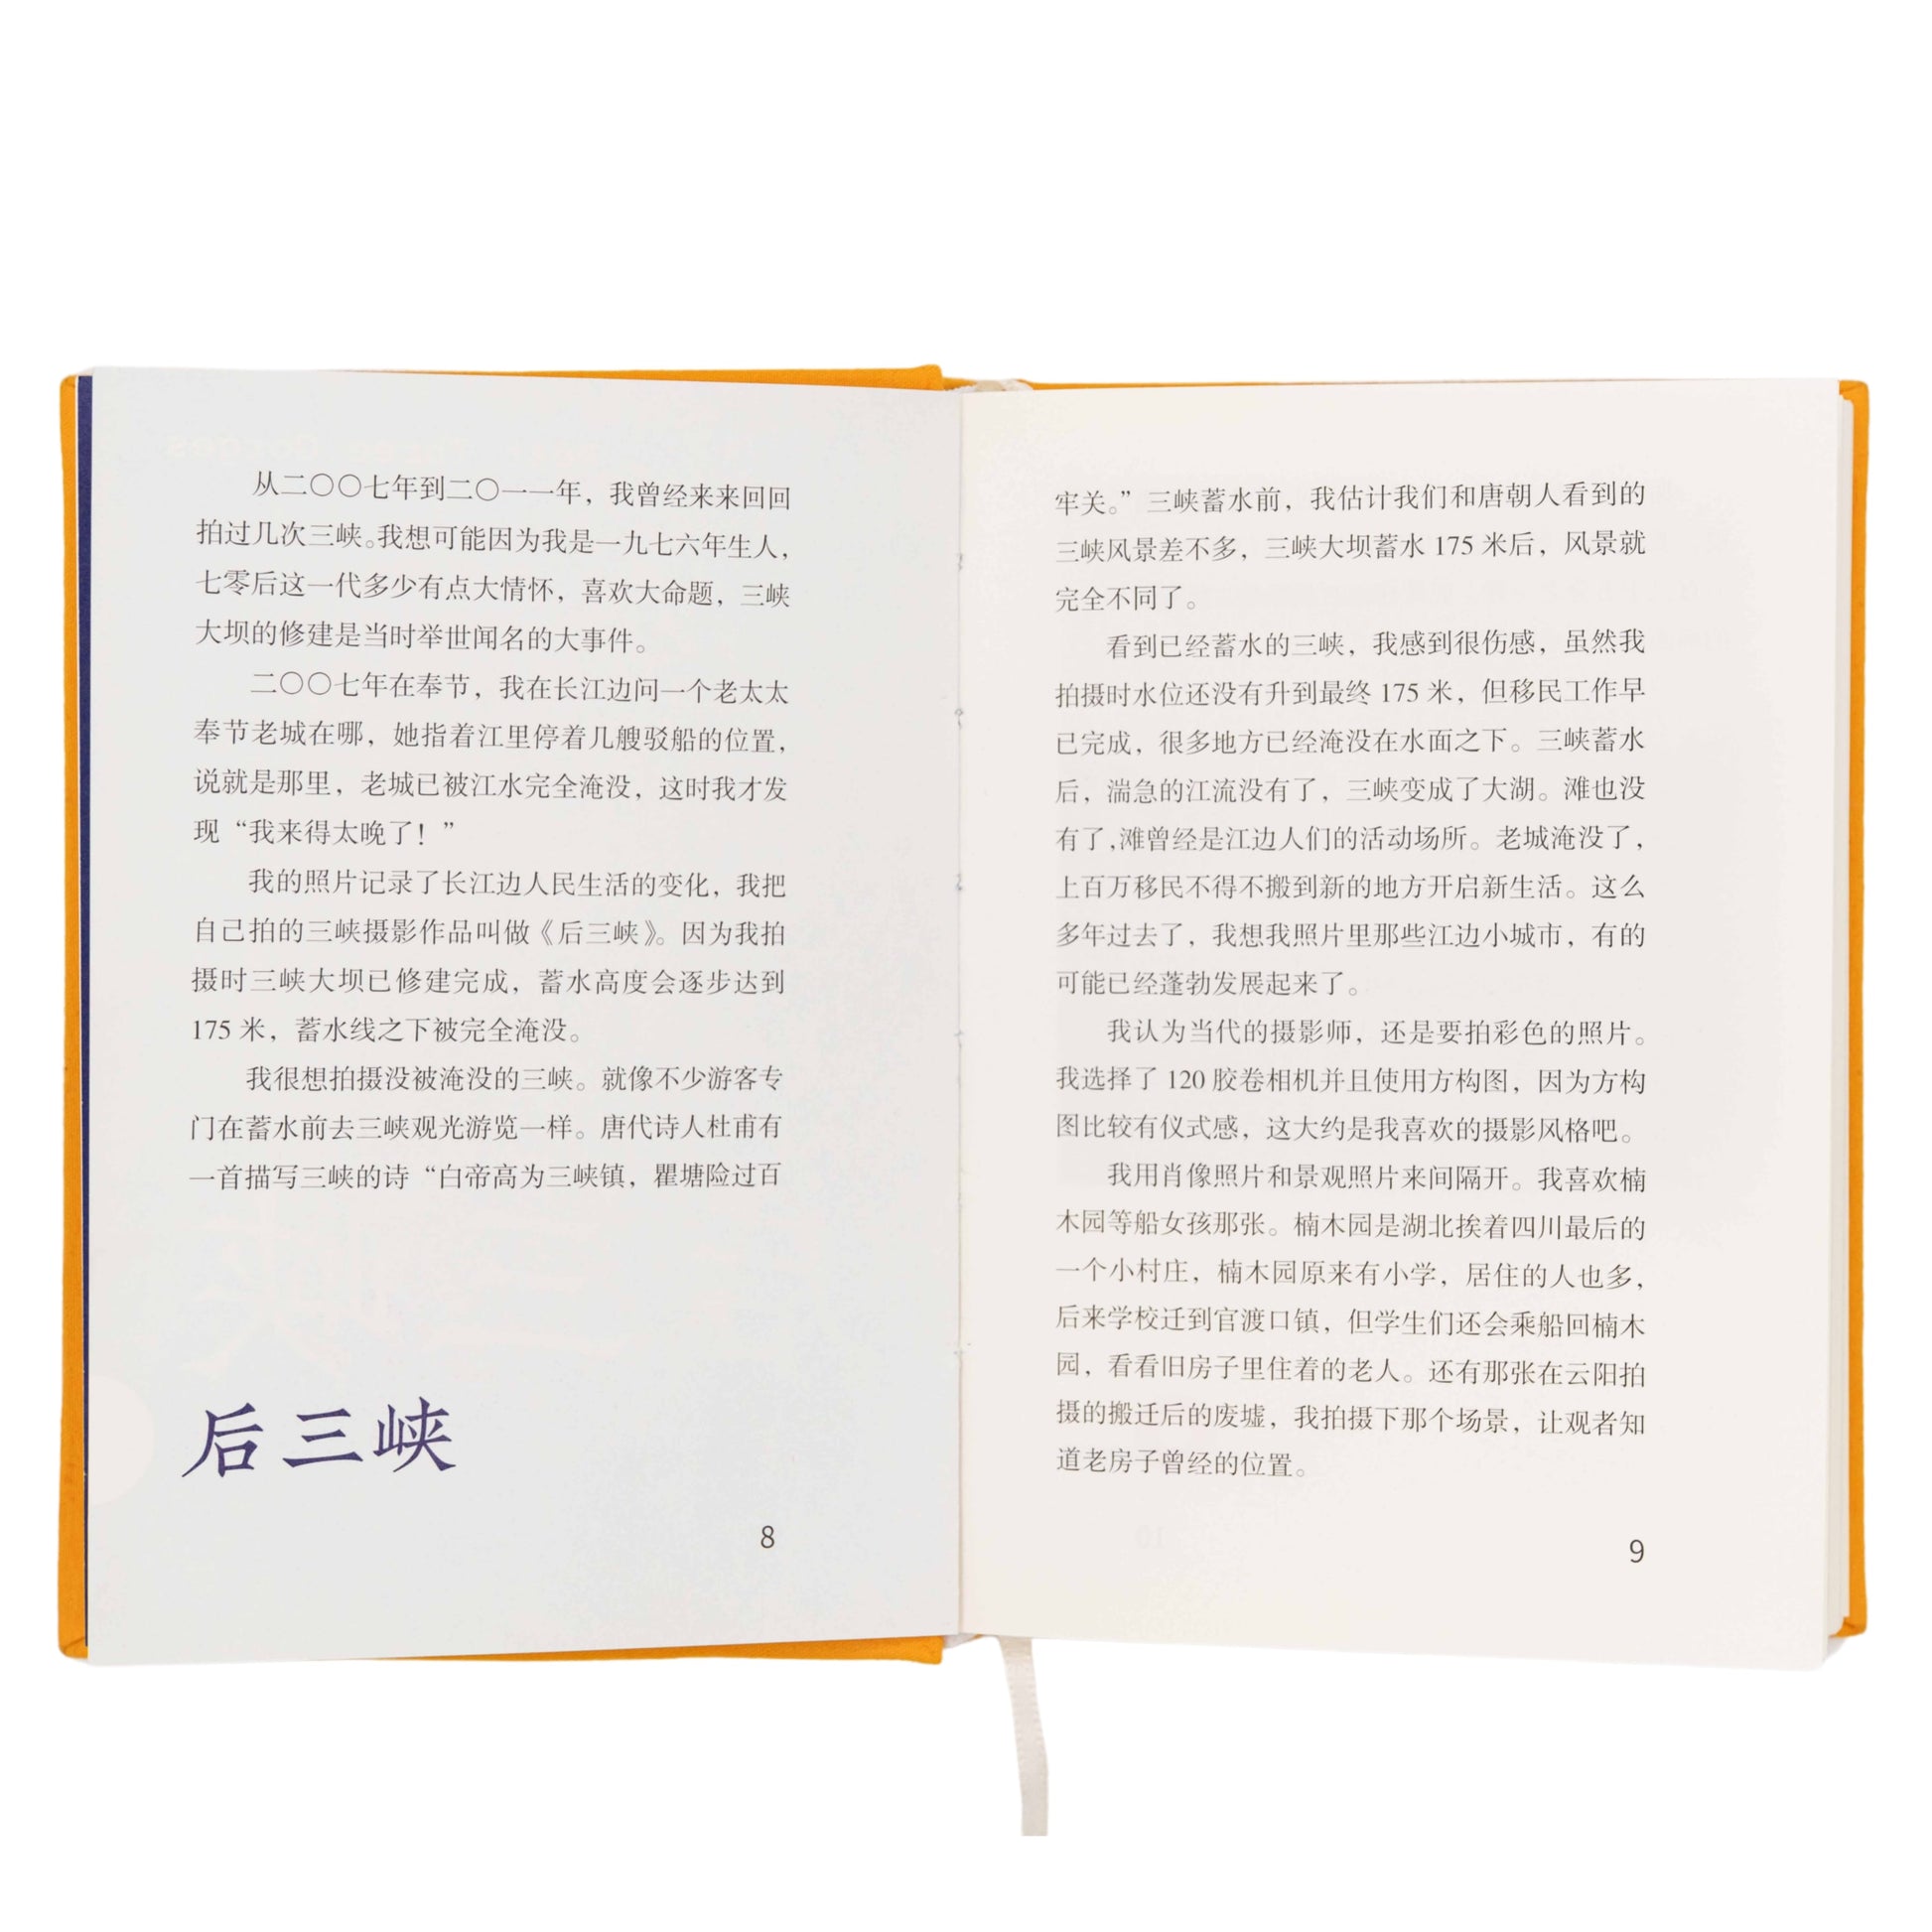 从二〇〇七年到二〇一一年，我曾经来来回回
拍过几次三峡。我想可能因为我是一九七六年生人，
七零后这一代多少有点大情怀，喜欢大命题，三峡
大坝的修建是当时举世闻名的大事件。
二〇〇七年在奉节，我在长江边问一个老太太
奉节老城在哪，她指着江里停着几艘驳船的位置，
说就是那里，老城已被江水完全淹没，这时我才发
现“我来得太晚了！”
我的照片记录了长江边人民生活的变化，我把
自己拍的三峡摄影作品叫做《后三峡》。因为我拍
摄时三峡大坝已修建完成，蓄水高度会逐步达到
175 米，蓄水线之下被完全淹没。
我很想拍摄没被淹没的三峡。就像不少游客专
门在蓄水前去三峡观光游览一样。唐代诗人杜甫有
一首描写三峡的诗“白帝高为三峡镇，瞿塘险过百
后三峡
8
牢关。”三峡蓄水前，我估计我们和唐朝人看到的
三峡风景差不多，三峡大坝蓄水 175 米后，风景就
完全不同了。
看到已经蓄水的三峡，我感到很伤感，虽然我
拍摄时水位还没有升到最终 175 米，但移民工作早
已完成，很多地方已经淹没在水面之下。三峡蓄水
后，湍急的江流没有了，三峡变成了大湖。滩也没
有了，滩曾经是江边人们的活动场所。老城淹没了，
上百万移民不得不搬到新的地方开启新生活。这么
多年过去了，我想我照片里那些江边小城市，有的
可能已经蓬勃发展起来了。
我认为当代的摄影师，还是要拍彩色的照片。
我选择了 120 胶卷相机并且使用方构图，因为方构
图比较有仪式感，这大约是我喜欢的摄影风格吧。
我用肖像照片和景观照片来间隔开。我喜欢楠
木园等船女孩那张。楠木园是湖北挨着四川最后的
一个小村庄，楠木园原来有小学，居住的人也多，
后来学校迁到官渡口镇，但学生们还会乘船回楠木
园，看看旧房子里住着的老人。还有那张在云阳拍
摄的搬迁后的废墟，我拍摄下那个场景，让观者知
道老房子曾经的位置。
9